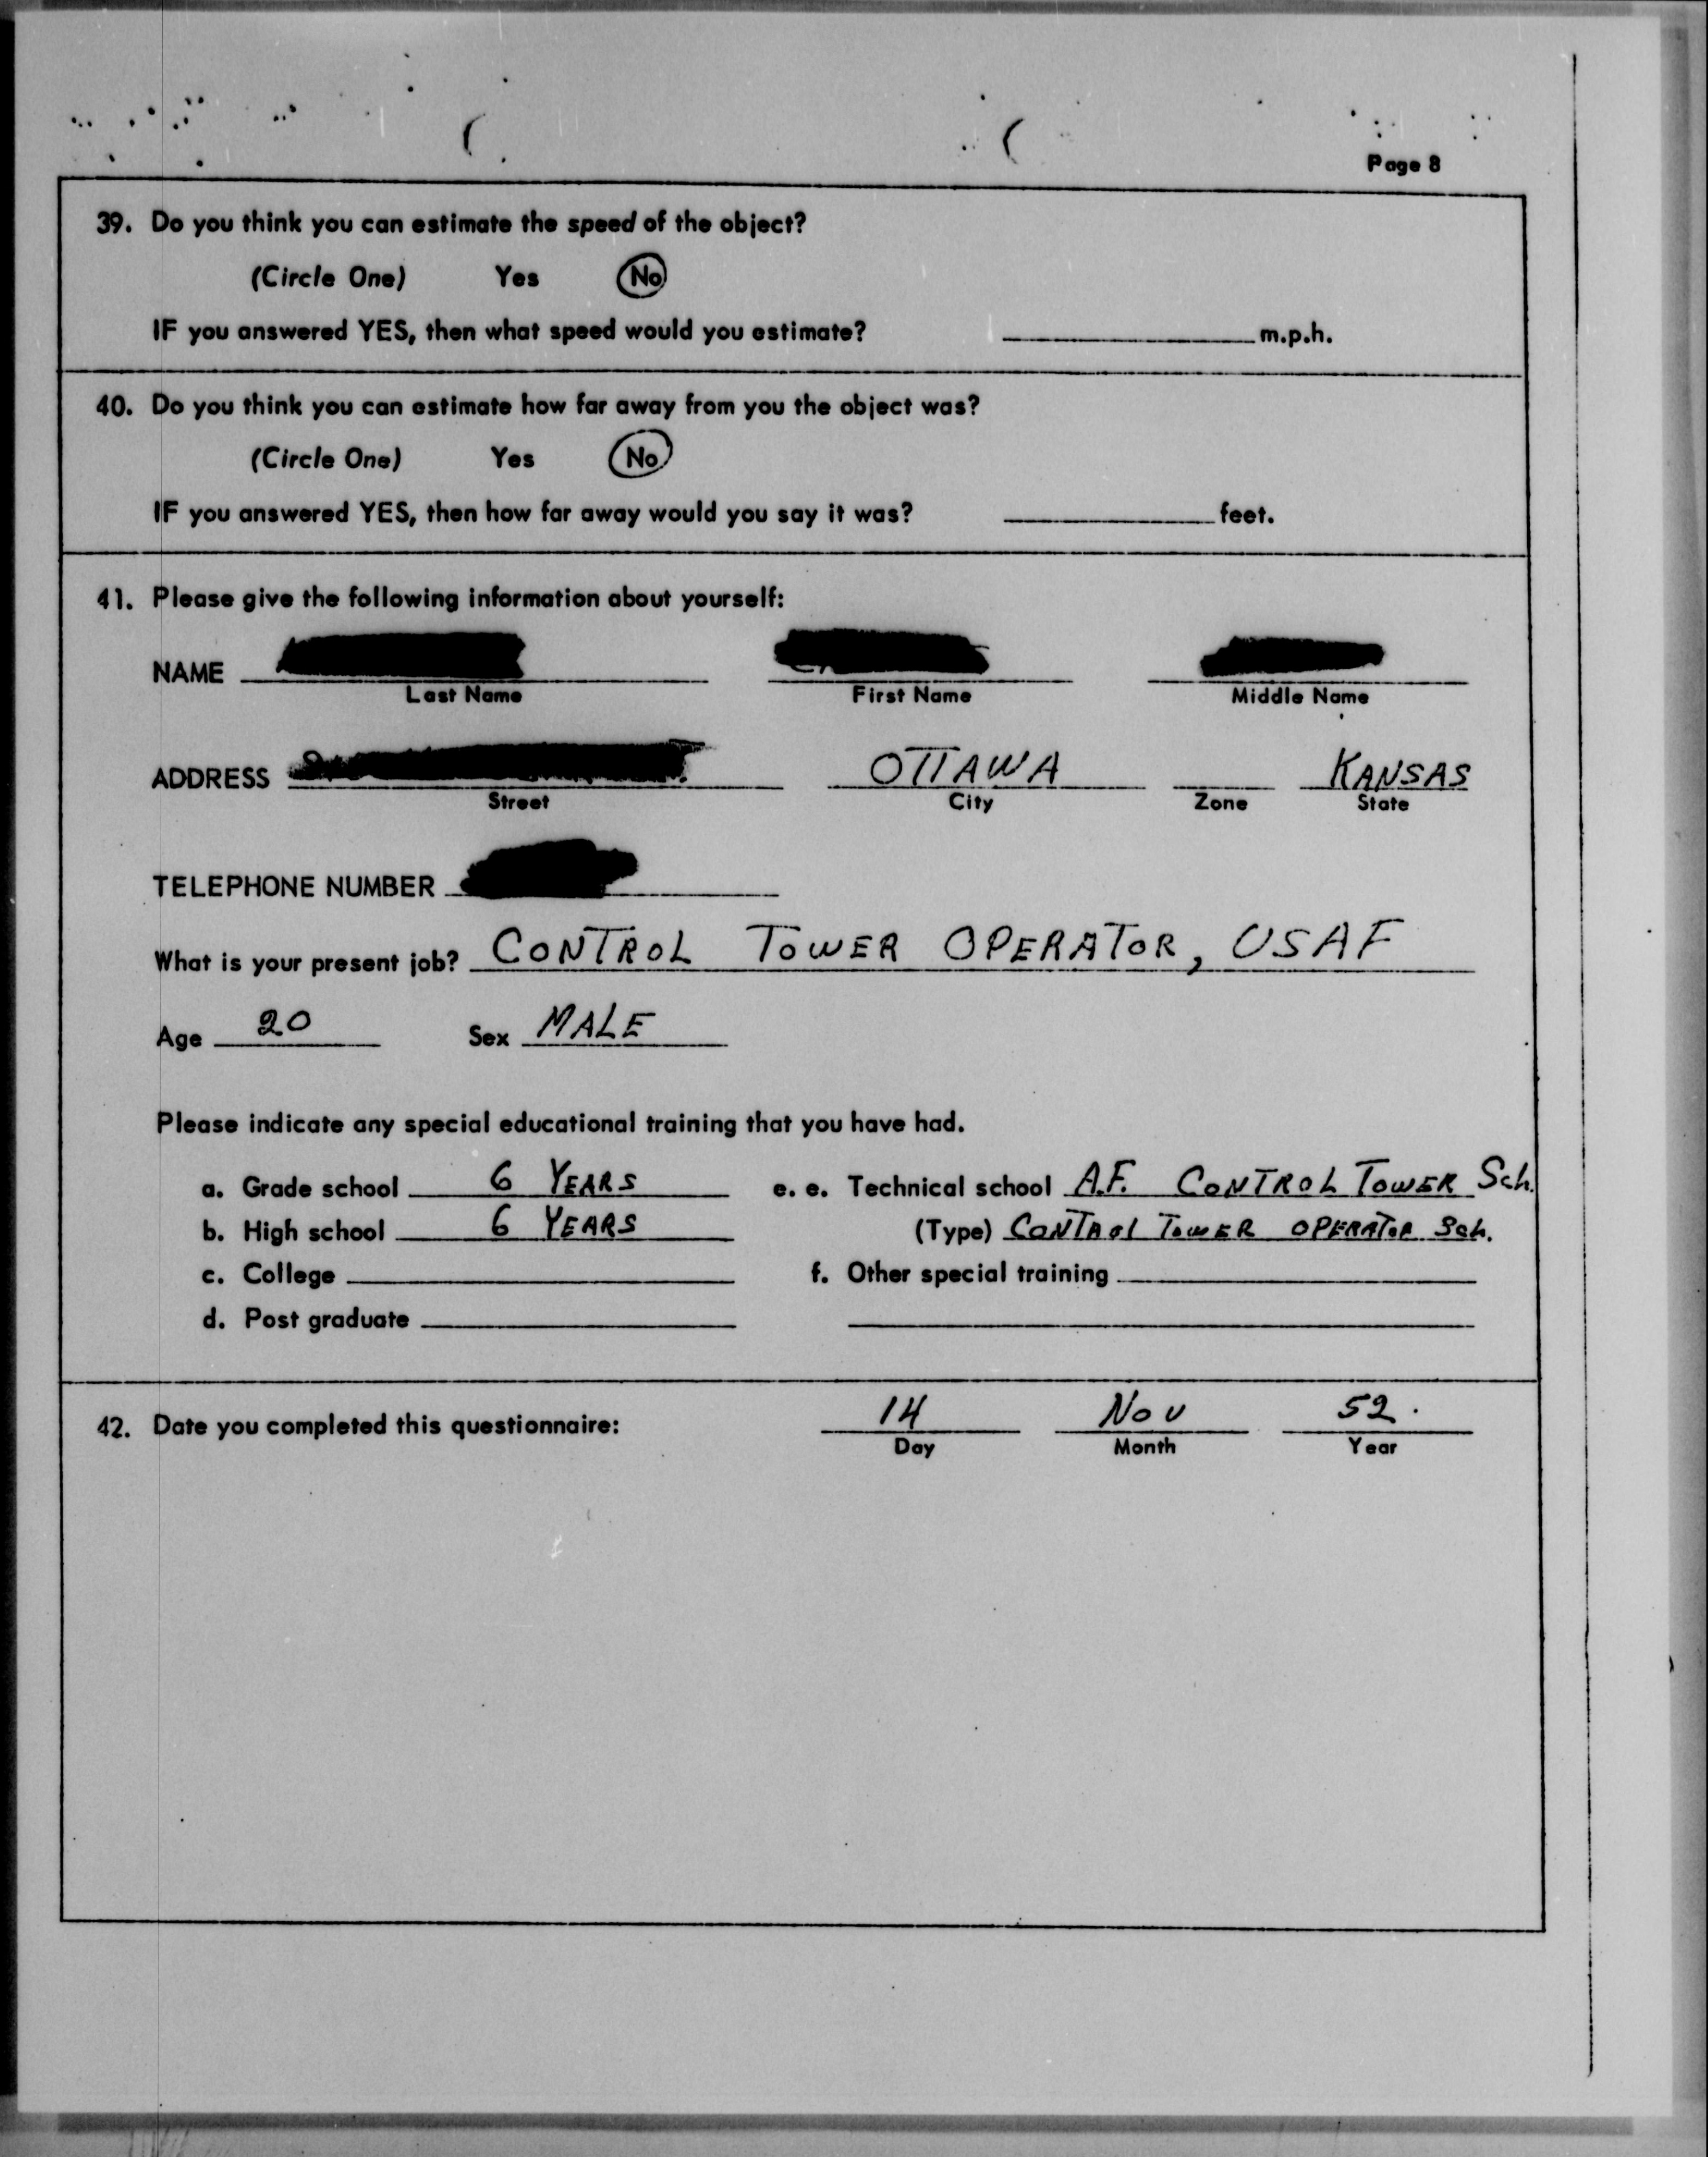 Page 8
39. Do you think you can estimate the speed of the object?
(Circle One) Yes No
IF you answered YES, then what speed would you estimate? m.p.h.
40. Do you think you can estimate how far away from you the object was?
(Circle One) Yes No
IF you answered YES, then how far away would you say it was? feet.
41. Please give the following information about yourself:
NAME
Last Name First Name Middle Name
ADDRESS OTTAWA KANSAS
Street City Zone State
TELEPHONE NUMBER
What is your present job? CONTROL TOWER OPERATOR, USAF
Age 20 Sex MALE
Please indicate any special educational training that you have had.
a. Grade school 6 YEARS e. e. Technical school A.F. CONTROL TOWER Sch.
b. High school 6 YEARS (Type) CONTROL TOWER OPERATOR Sch.
c. College f. Other special training
d. Post graduate
42. Date you completed this questionnaire: 14 Nov 52.
Day Month Year